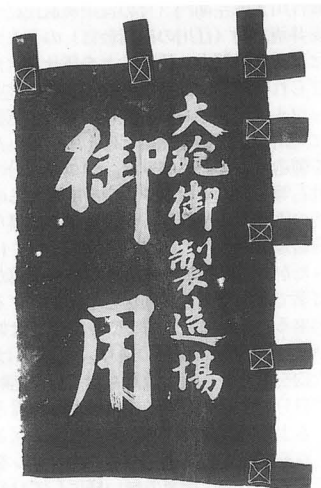 大砲御製造場
御用